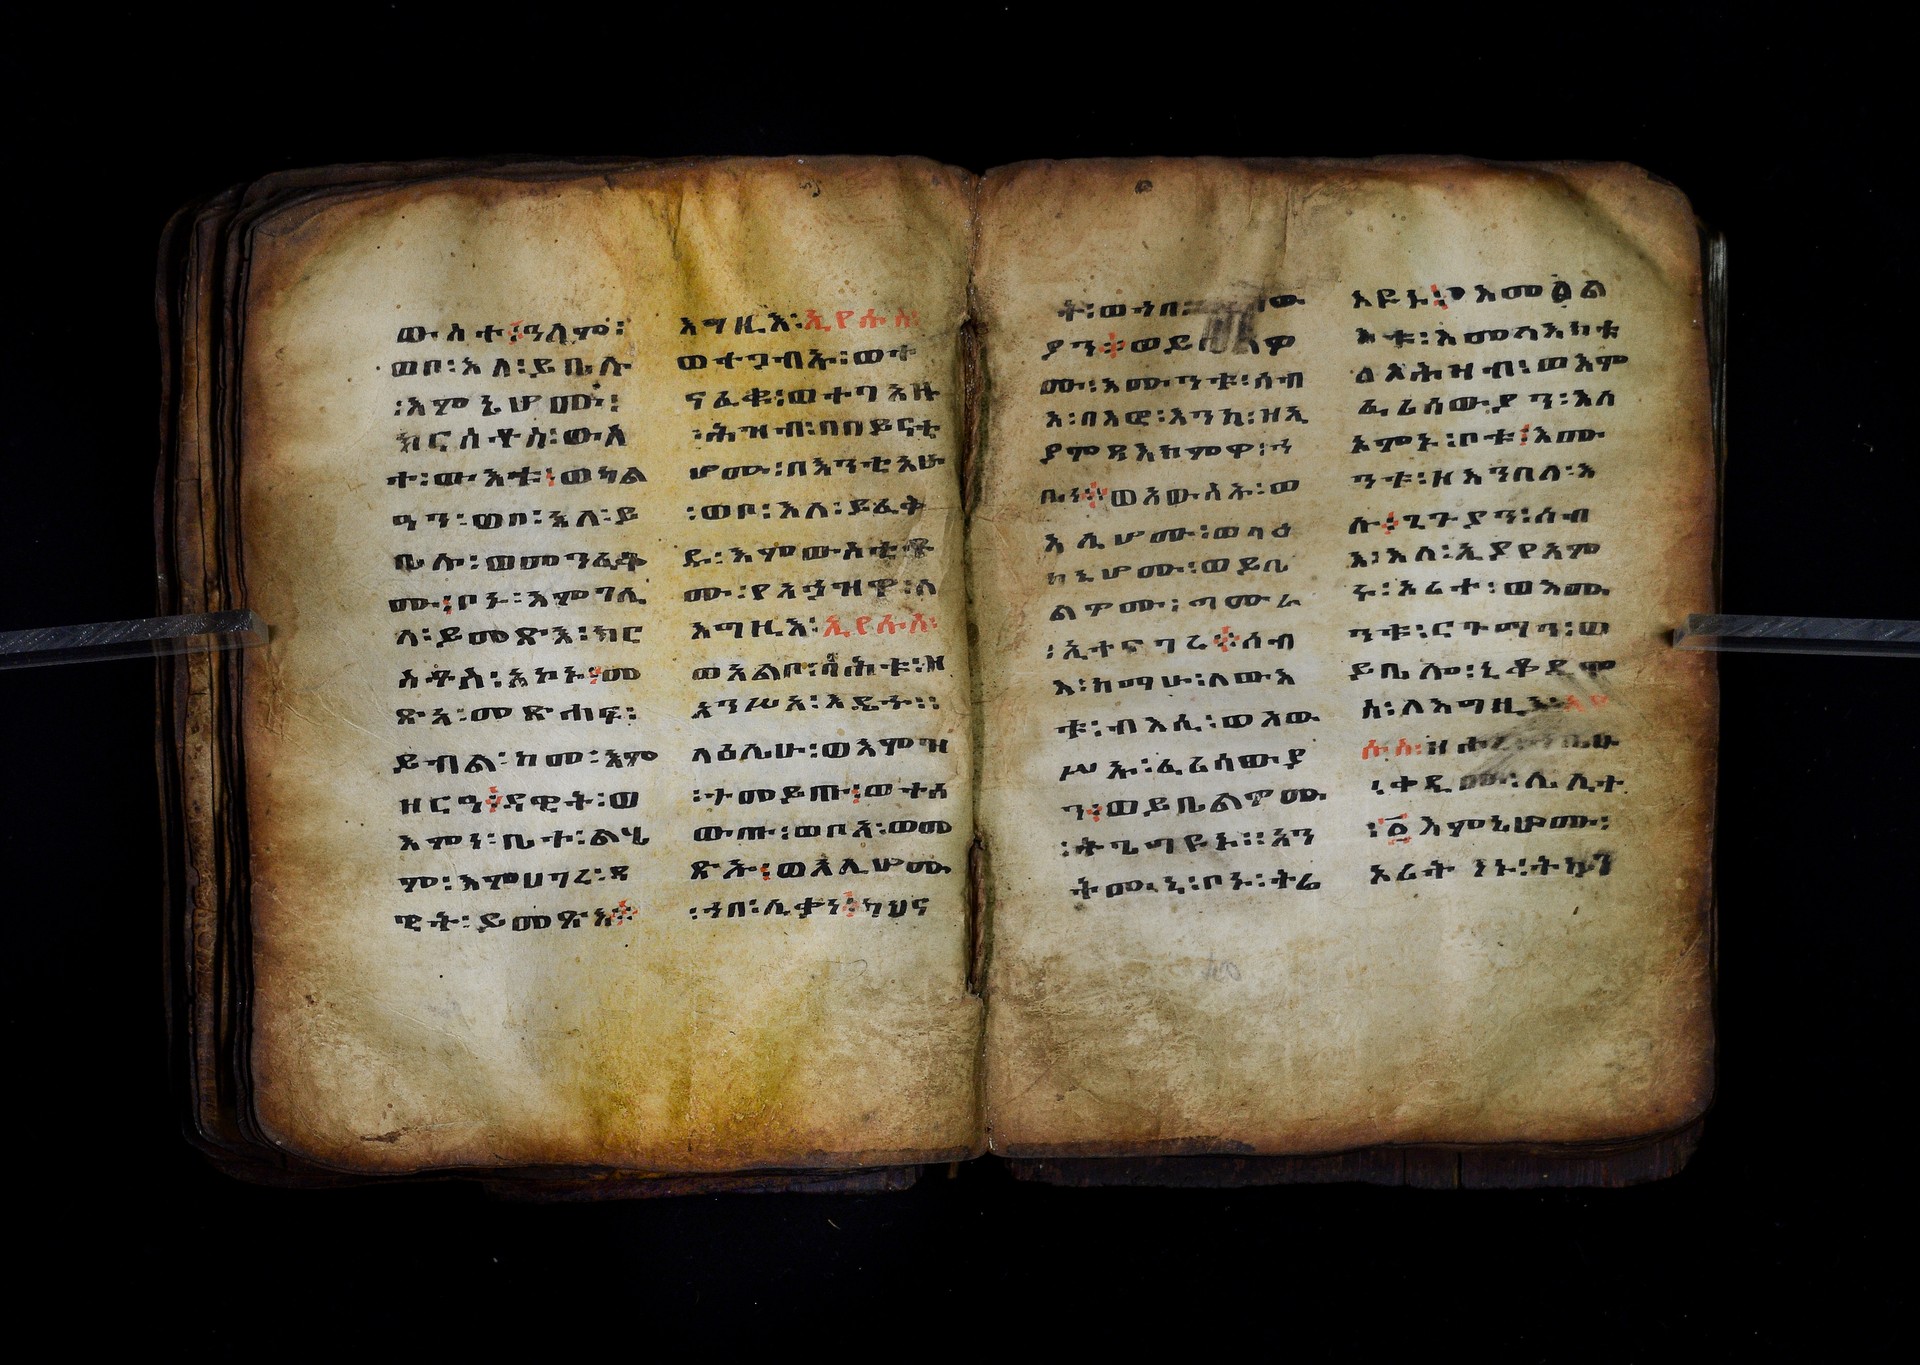 ውስተ፡ዓለም፡
ወቦ፡እለ፡ይቤሉ
፡እምኔሆሙ፡
ክርስቶስ፡ውእ
ቱ፡ውእቱ፡ወካል
ዓን፡ወቦ፡እለ፡ይ
ቤሉ፡ወመንፈቆ
ሙ፡ቦኑ፡እምገሊ
ላ፡ይመጽእ፡ክር
ስቶስ፡አኮኑ፡መ
ጽአ፡መጽሐፍ፡
ይብል፡ከመ፡እም
ዘርዓ፡ዳዊት፡ወ
እምነ፡ቤተ፡ልሄ
ም፡እምሀገረ፡ዳ
ዊት፡ይመጽእ፨
እግዚእ፡ኢየሱስ፡
ወተጋብኡ፡ወተ
ናፈቁ፡ወተጋአዙ
፡ሕዝብ፡በበይናቲ
ሆሙ፡በእንቲአሁ
፡ወቦ፡እለ፡ይፈቅ
ዱ፡እምውስቴቶ
ሙ፡የአኀዝዎ፡ለ
እግዚእ፡ኢየሱስ፡
ወአልቦ፡ባሕቱ፡ዘ
አንሥአ፡እዴሁ፡፡
ላዕሌሁ፡ወእምዝ
፡ተመይጡ፡ወተለ
ውጡ፡ወቦአ፡ወመ
ጽኡ፡ወእሊሆሙ
፡ኀበ፡ሊቃነ፡ካህና
ት፡ወኀበ፡
ያን፨
ሙ፡እሙንቱ፡ሰብ
እ፡በእፎ፡እንከ፡ዘኢ
ያምጻእክምዎ፡ን
ቤነ፨ወአውሥኡ፡ወ
እሊሆሙ፡ወላዕ
ከኒሆሙ፡ወይቤ
ልዎሙ፡ግሙራ
፡ኢተናገረ፨ሰብ
እ፡ከማሁ፡ለውእ
ቱ፡ብእሲ፡ወአው
ሥኡ፡ፈሪሳውያ
ን፡ወይቤልዎሙ
፡ትጌግዩኑ፡፡አን
ትሙኒ፡ቦኑ፡ትሬ
እዩኑ፡
እቱ፡እመላእክቱ
ልአሕዝብ፡ወእም
ፈሪሰውያን፡እለ
አምኑ፡ቦቱ፡እሙ
ንቱ፡ዘእንበለ፡እ
ሉ፡ጊጉያን፡ሰብ
እ፡እለ፡ኢያየአም
ሩ፡ኦሪተ፡ወእሙ
ንቱ፡ርጉማን፡ወ
ይቤሎ፡ኒቆዲሞ
ስ፡ለእግዚእ፡ኢየ
ሱስ፡
፡ቀዲሙ፡ሌሊተ
፡፩እምኔሆሙ፡
ኦሪት ንኑ፡ትኴን